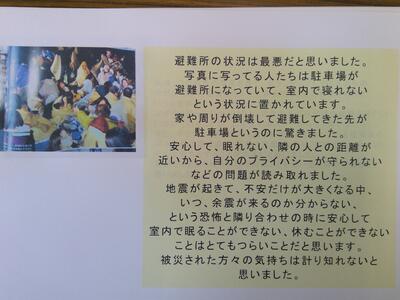 避難所の状況は最悪だと思いました。
写真に写ってる人たちは駐車場が
避難所になっていて、室内で寝れない
という状況に置かれています。
家や周りが倒壊して避難してきた先が
駐車場というのに驚きました。
安心して、眠れない、隣の人との距離が
近いから、自分のプライバシーが守られない
などの問題が読み取れました。
地震が起きて、不安だけが大きくなる中、
いつ、余震が来るのか分からない、
という恐怖と隣り合わせの時に安心して
室内で眠ることができない、休むことができない
ことはとてもつらいことだと思います。
被災された方々の気持ちは計り知れないと
思いました。